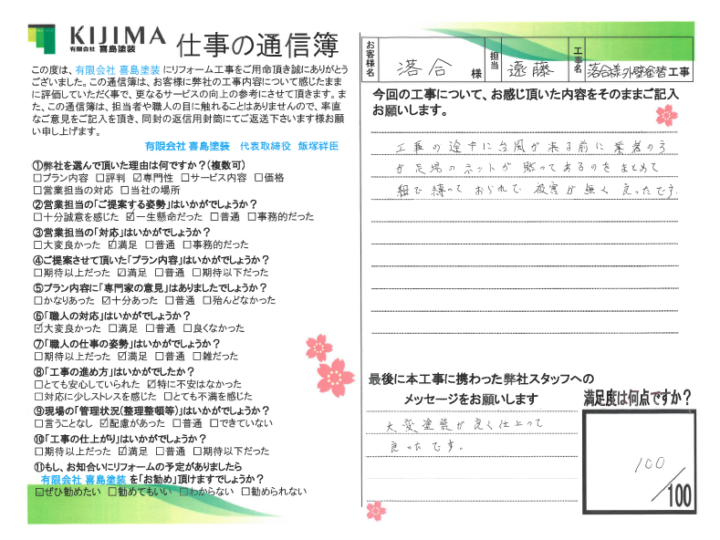 KIJIMA
有限会社 喜島塗装
仕事の通信簿
この度は、有限会社 喜島塗装 にリフォーム工事をご用命頂き誠にありがとう
ございました。この通信簿は、お客様に弊社の工事内容について感じたまま
に評価していただく事で、更なるサービスの向上の参考にさせて頂きます。ま
た、この通信簿は、担当者や職人の目に触れることはありませんので、率直
なご意見をご記入を頂き、同封の返信用封筒にてご返送下さいます様お願
い申し上げます。
有限会社 喜島塗装 代表取締役 飯塚祥臣
①弊社を選んで頂いた理由は何ですか？(複数可)
□プラン内容 □評判 ☑専門性 □サービス内容 □価格
□営業担当の対応 □当社の場所
②営業担当の「ご提案する姿勢」はいかがでしょうか？
□十分誠意を感じた ☑一生懸命だった □普通 □事務的だった
③営業担当の「対応」はいかがでしょうか？
□大変良かった ☑満足 □普通 □事務的だった
④ご提案させて頂いた「プラン内容」はいかがでしょうか？
□期待以上だった ☑満足 □普通 □期待以下だった
⑤プラン内容に「専門家の意見」はありましたでしょうか？
□かなりあった ☑十分あった □普通 □殆んどなかった
⑥「職人の対応」はいかがでしょうか？
☑大変良かった □満足 □普通 □良くなかった
⑦「職人の仕事の姿勢」はいかがでしょうか？
□期待以上だった ☑満足 □普通 □雑だった
⑧「工事の進め方」はいかがでしたか？
□とても安心していられた ☑特に不安はなかった
□対応に少しストレスを感じた □とても不満を感じた
⑨現場の「管理状況(整理整頓等)」はいかがでしょうか？
□言うことなし ☑配慮があった □普通 □できていない
⑩「工事の仕上がり」はいかがでしょうか？
□期待以上だった ☑満足 □普通 □期待以下だった
⑪もし、お知合いにリフォームの予定がありましたら
有限会社 喜島塗装 を「お勧め」頂けますでしょうか？
□ぜひ勧めたい □勧めてもいい □わからない □勧められない
お客様名 落合 様 担当 遠藤 工事名 落合様外壁塗替工事
今回の工事について、お感じ頂いた内容をそのままご記入
お願いします。
工事の途中に台風が来る前に業者の方
が足場のネットが貼ってあるのをまとめて
紐で縛っておられて被害が無く良かったです。
最後に本工事に携わった弊社スタッフへの
メッセージをお願いします
大変塗装が良く仕上って
良ったです。
満足度は何点ですか？
100
/100